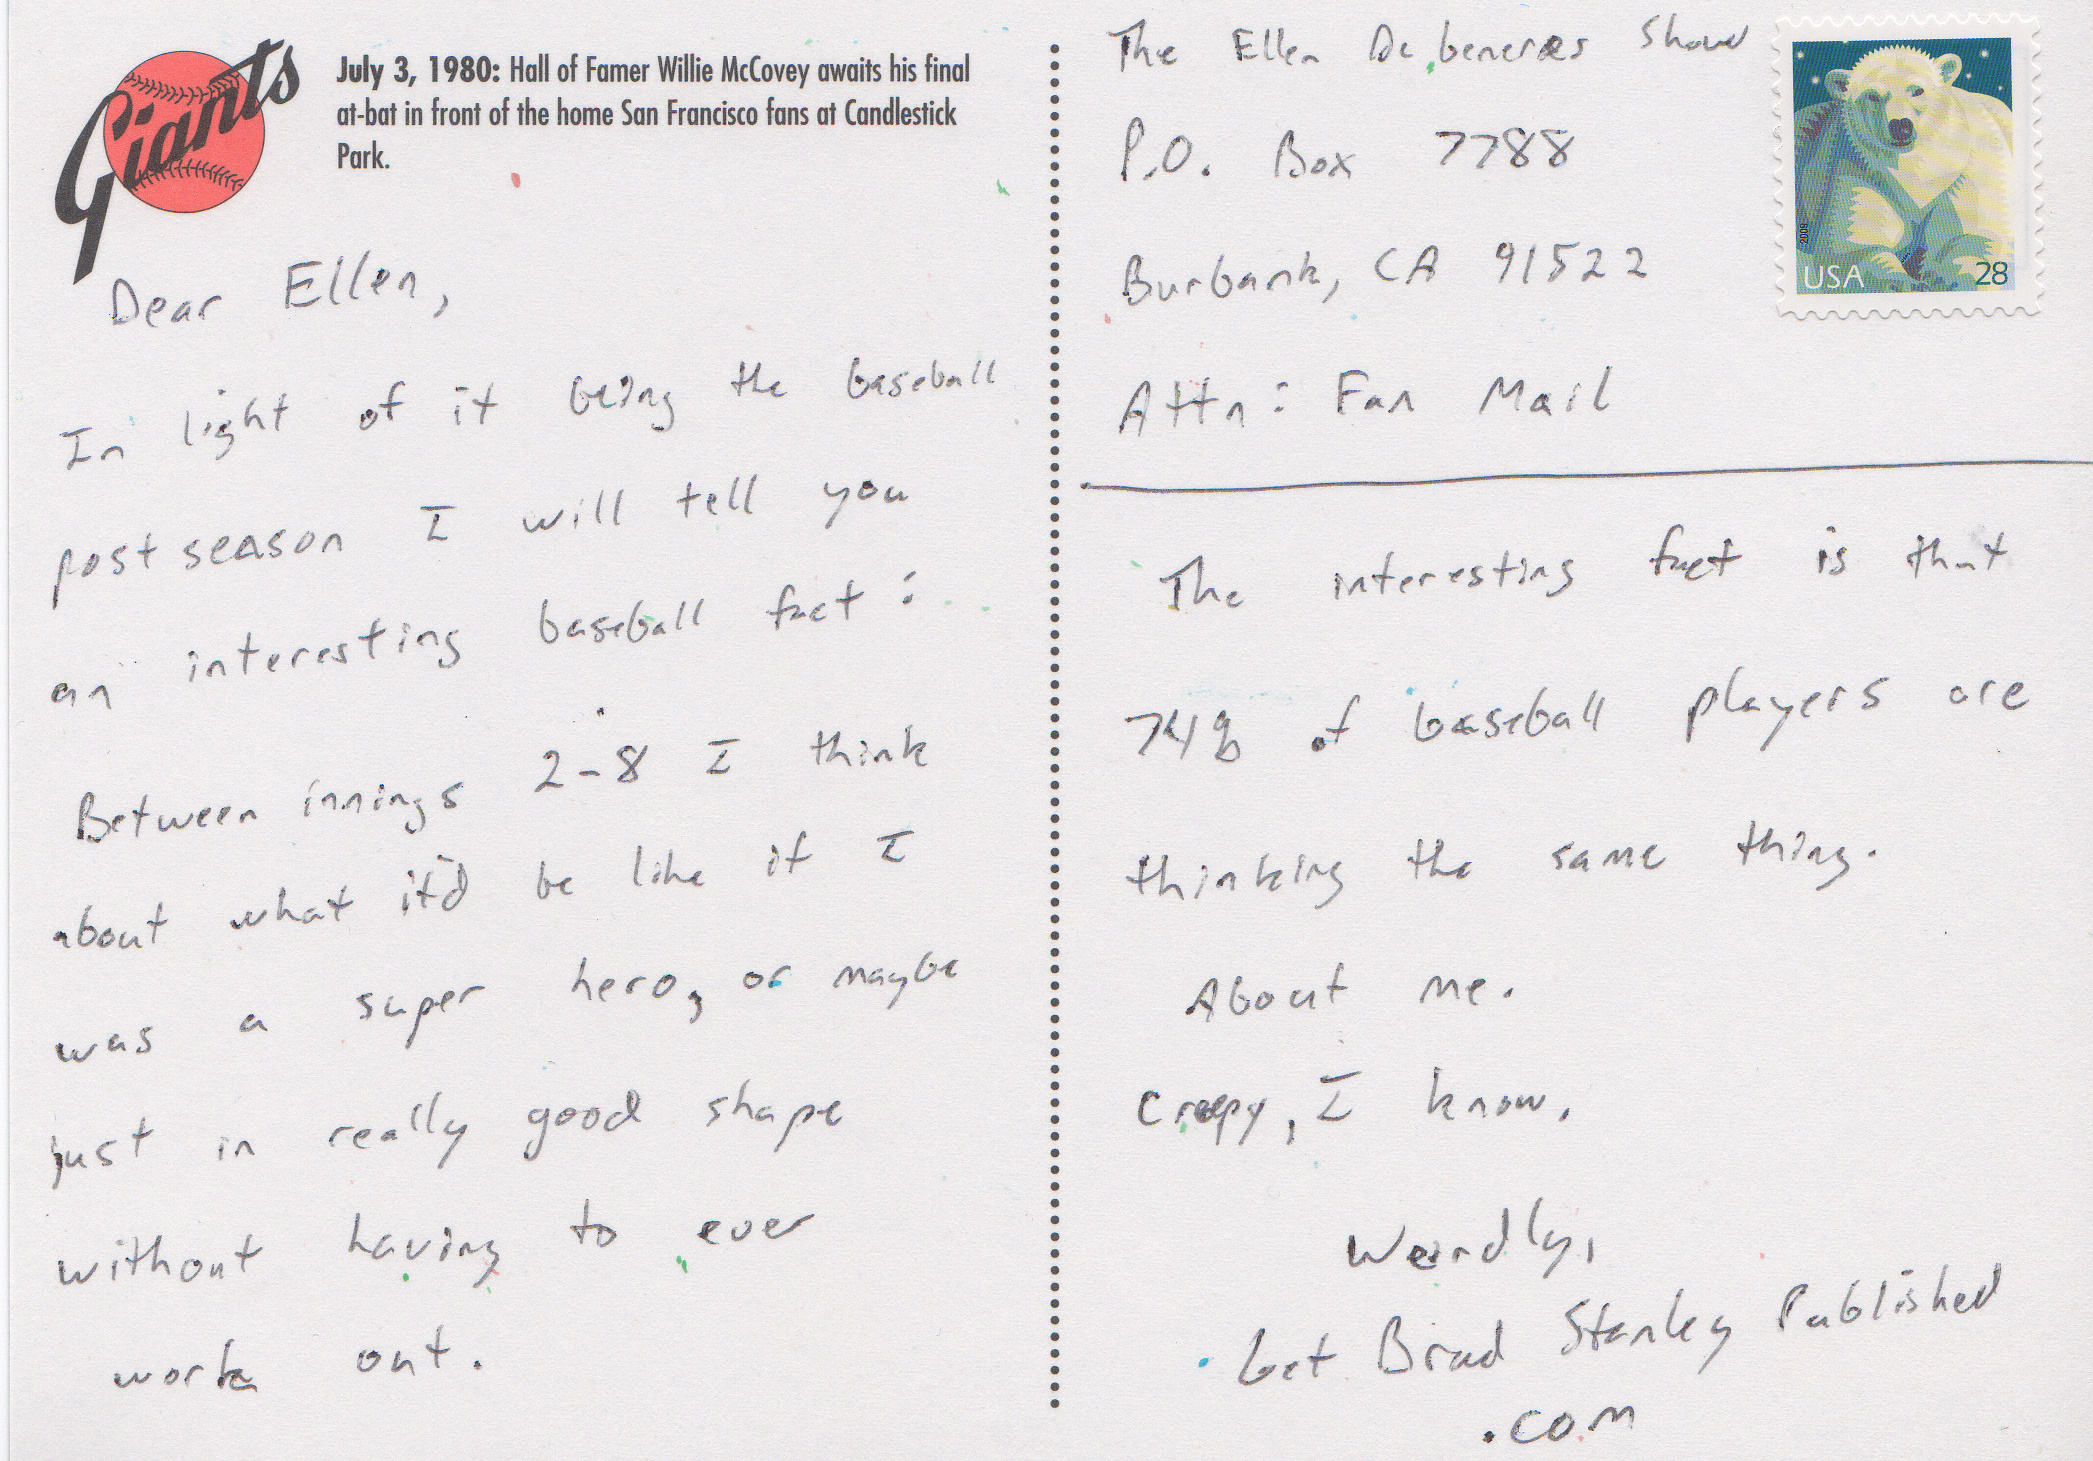 Giants
July 3, 1980: Hall of Famer Willie McCovey awaits his final
at-bat in front of the home San Francisco fans at Candlestick
Park.
Dear Ellen,
In light of it being the baseball
post season I will tell you
an interesting baseball fact:
Between innings 2-8 I think
about what it'd be like if I
was a super hero, or maybe
just in really good shape
without having to ever
work out.
The Ellen Degeneres Show
P.O. Box 7788
Burbank, CA 91522
Attn: Fan Mail
USA 28
2009
The interesting fact is that
74% of baseball players are
thinking the same thing.
About me.
Creepy, I know.
Weirdly,
Get Brad Stanley Published
.com